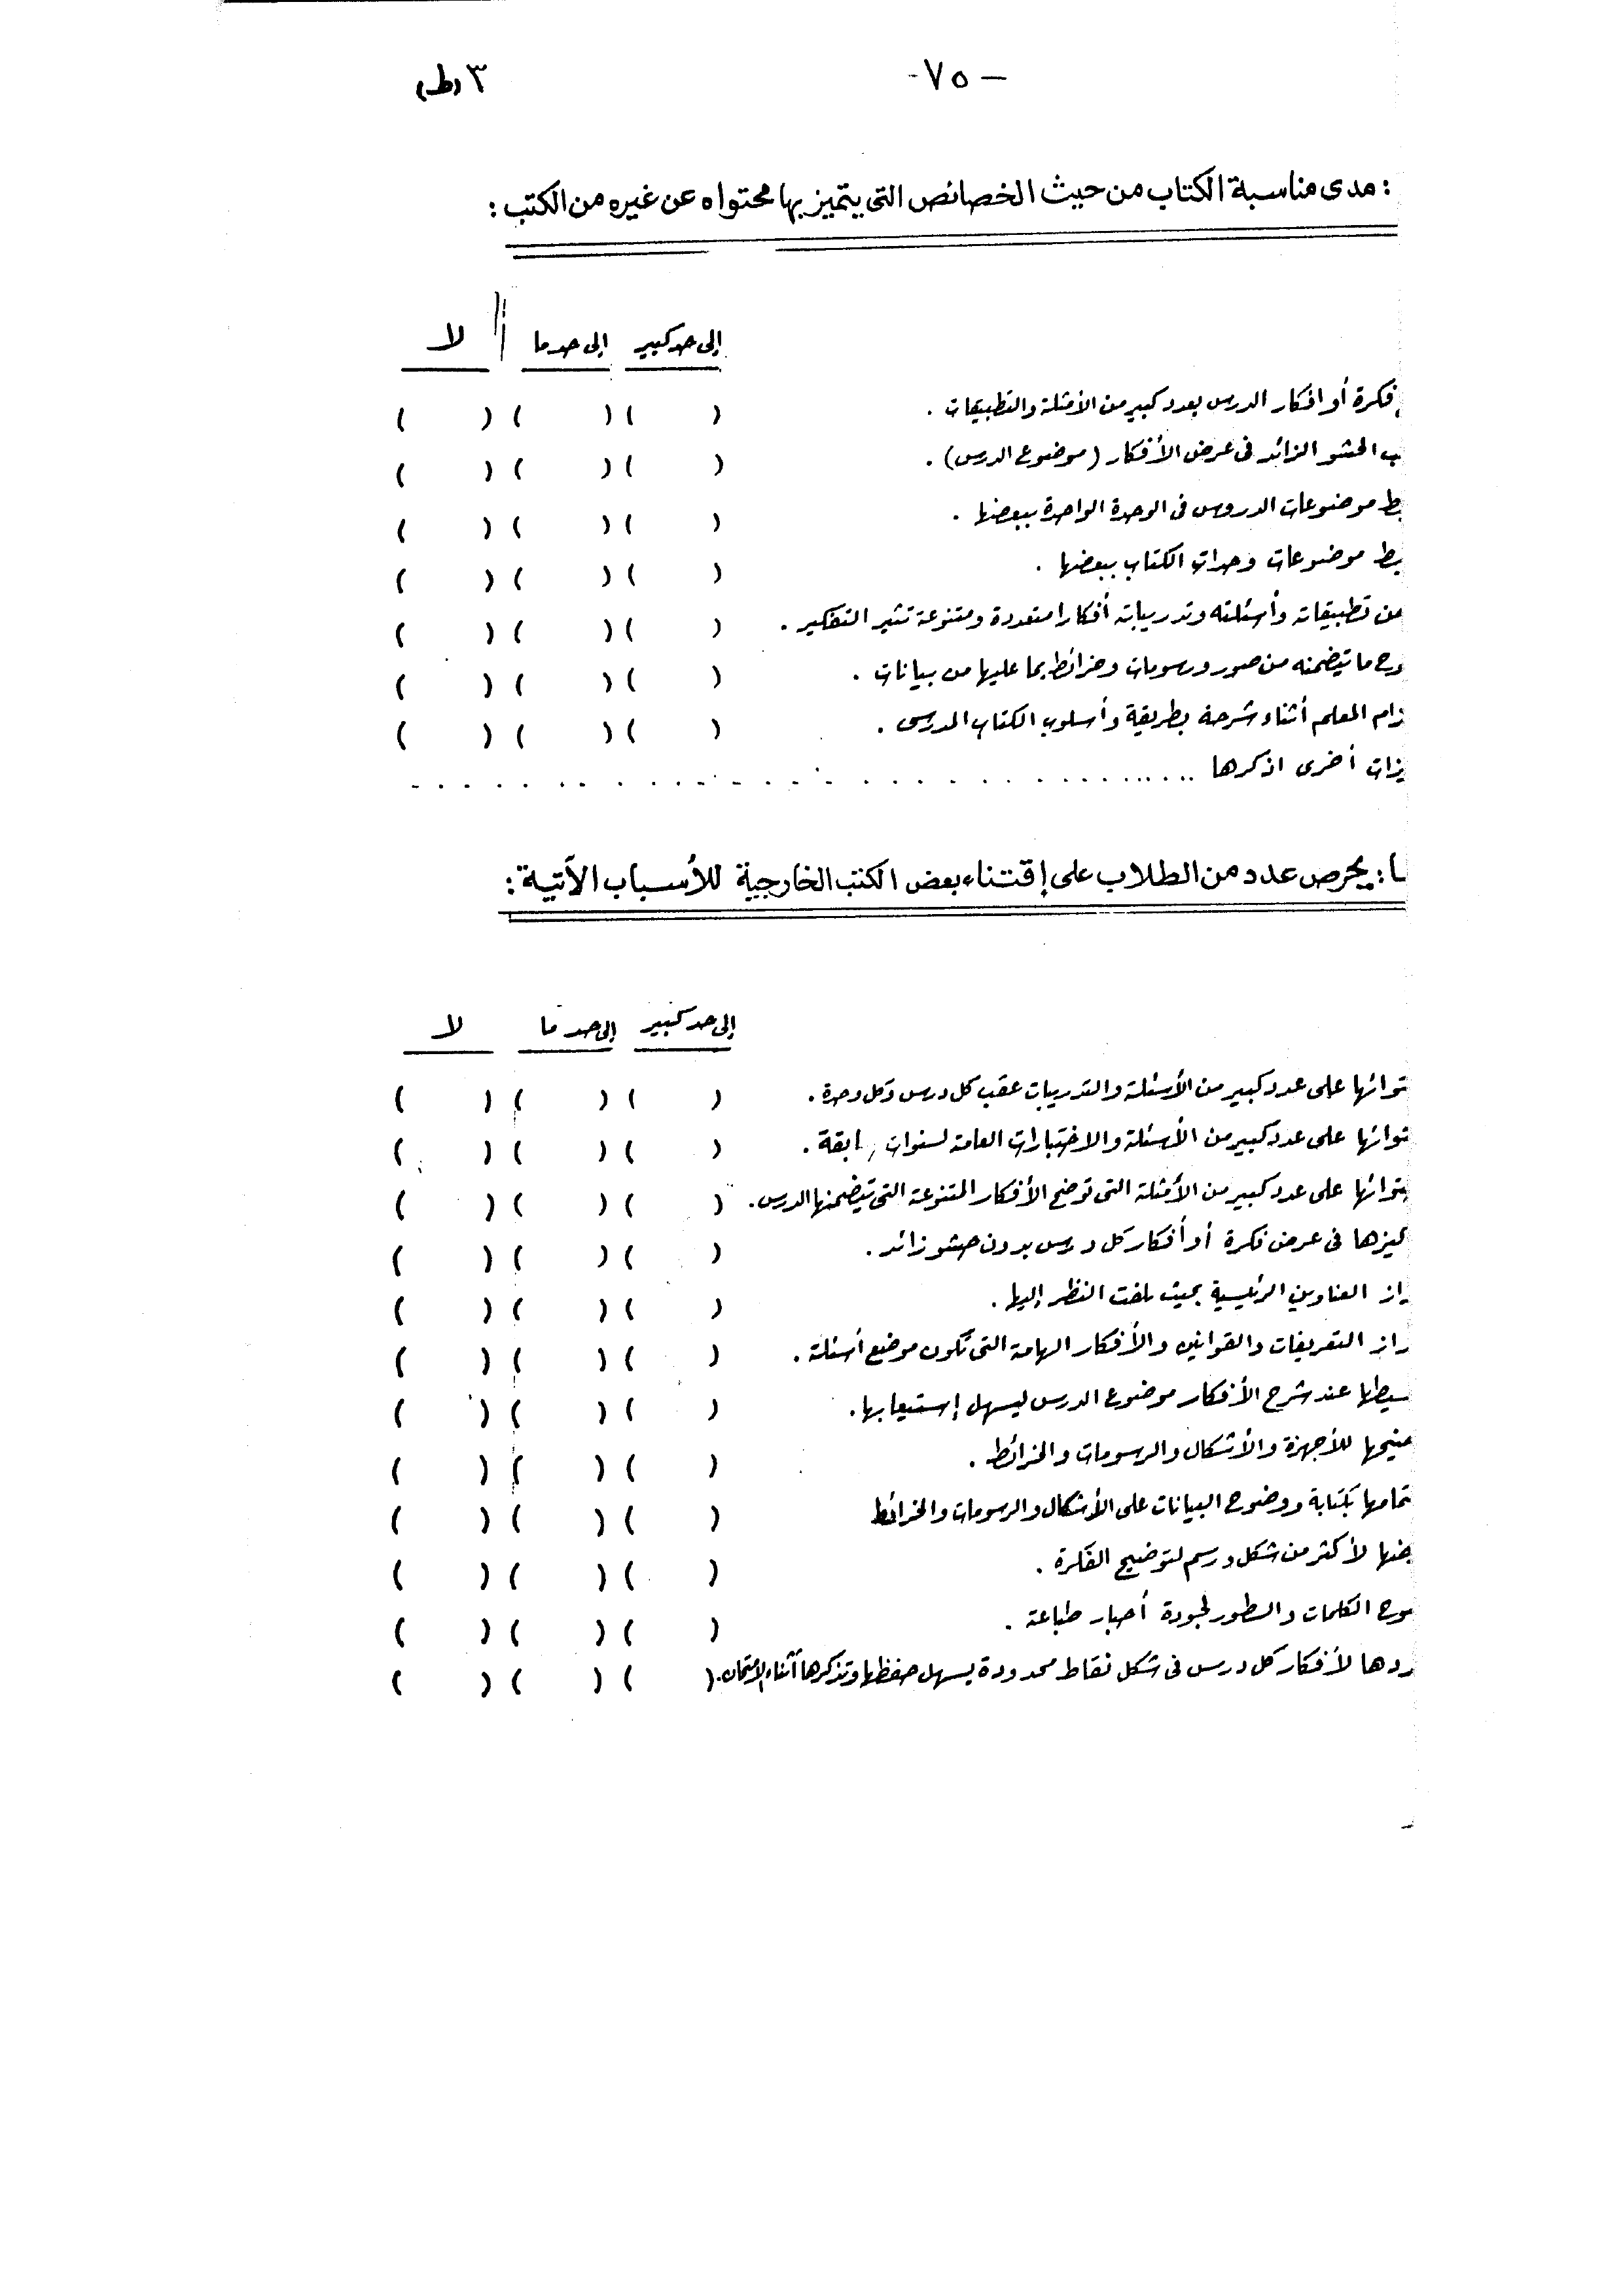 - ٧٥ -
٣ (ط)
: مدى مناسبة الكتاب من حيث الخصائص التى يتميز بها محتواه عن غيره من الكتب :
إلى حد كبير إلى حد ما لا
فكرة أو افكار الدرس بعدد كبير من الأمثلة والتطبيقات . ( ) ( ) ( )
ب الحشو الزائد فى عرض الأفكار (موضوع الدرس) . ( ) ( ) ( )
بط موضوعات الدروس فى الوحدة الواحدة ببعضها . ( ) ( ) ( )
بط موضوعات وحدات الكتاب ببعضها . ( ) ( ) ( )
من تطبيقاته وأسئلته وتدريباته أفكارا متعددة ومتنوعة تثير التفكير . ( ) ( ) ( )
وح ما يتضمنه من صور ورسومات وخرائط بما عليها من بيانات . ( ) ( ) ( )
زام المعلم أثناء شرحه بطريقة وأسلوب الكتاب المدرسى . ( ) ( ) ( )
يزات أخرى اذكرها ........................
ـا : يحرص عدد من الطلاب على إقتناء بعض الكتب الخارجية للأسباب الآتية :
إلى حد كبير إلى حد ما لا
توائها على عدد كبير من الأسئلة والتدريبات عقب كل درس وكل وحدة . ( ) ( ) ( )
توائها على عدد كبير من الأسئلة والاختبارات العامة لسنوات ابقة . ( ) ( ) ( )
توائها على عدد كبير من الأمثلة التى توضح الأفكار المتنوعة التى يتضمنها الدرس . ( ) ( ) ( )
كيزها فى عرض فكرة أو أفكار كل درس بدون حشو زائد . ( ) ( ) ( )
راز العناوين الرئيسية بحيث تلفت النظر إليها . ( ) ( ) ( )
راز التعريفات والقوانين والأفكار الهامة التى تكون موضع أسئلة . ( ) ( ) ( )
سيطها عند شرح الأفكار موضوع الدرس ليسهل إستيعابها . ( ) ( ) ( )
ضيحها للأجهزة والأشكال والرسومات والخرائط . ( ) ( ) ( )
تمامها بكتابة ووضوح البيانات على الأشكال والرسومات والخرائط ( ) ( ) ( )
ضها لأكثر من شكل ورسم لتوضيح الفكرة . ( ) ( ) ( )
ضوح الكلمات والسطور لجودة أحبار طباعة . ( ) ( ) ( )
ردها لأفكار كل درس فى شكل نقاط محدودة يسهل حفظها وتذكرها أثناء الإمتحان . ( ) ( ) ( )